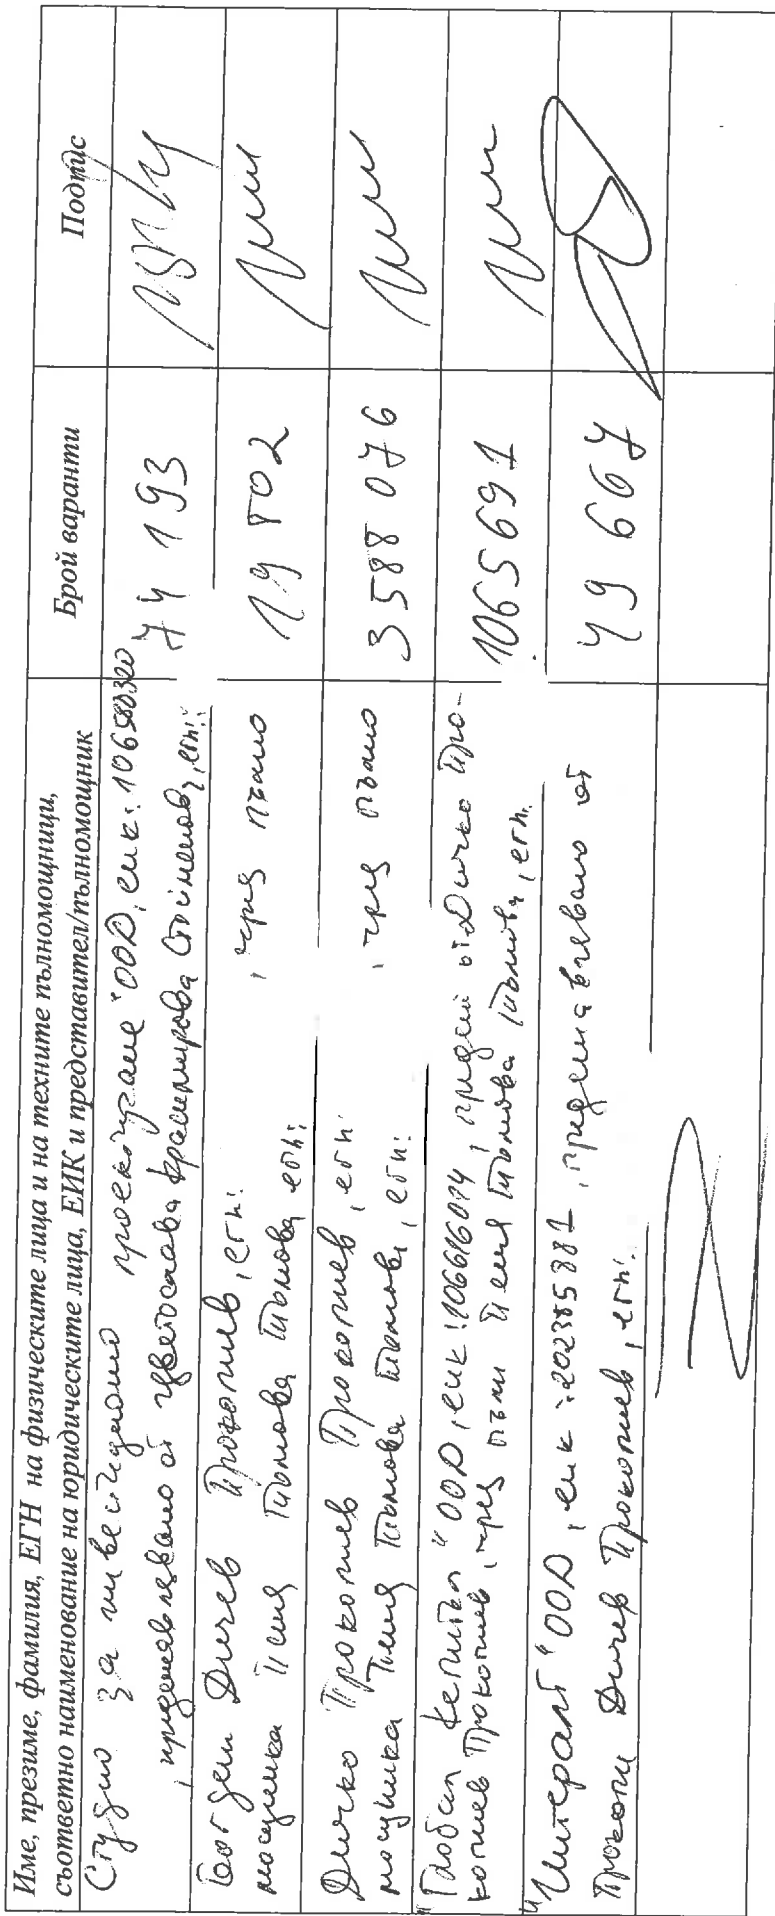 Име, презиме, фамилия, ЕГН на физическите лица и на техните пълномощници,
съответно наименование на юридическите лица, ЕИК и представител/пълномощник
Брой варанти
Подпис
Студио за инвестиционно проектиране" ООД, еик: 106580320
, представлявано от Цветослава Красимирова Стоименова, егн:
74 193
Богдан Дичев Прокопиев, егн: , чрез пълно
мощника Пеня Тотова егн:
19 802
Дичко Прокопиев Прокопиев, егн: , чрез пълно
мощника Пеня егн:
3588 076
"Глобал Кепитал" ООД, еик: 106616074, предст. от Дичко Про-
копиев Прокопиев, чрез пълн. Пеня егн:
1065 691
"Интерант" ООД, еик: 202385881, представлявано от
Прокопи Дичев Прокопиев, егн:
49 667